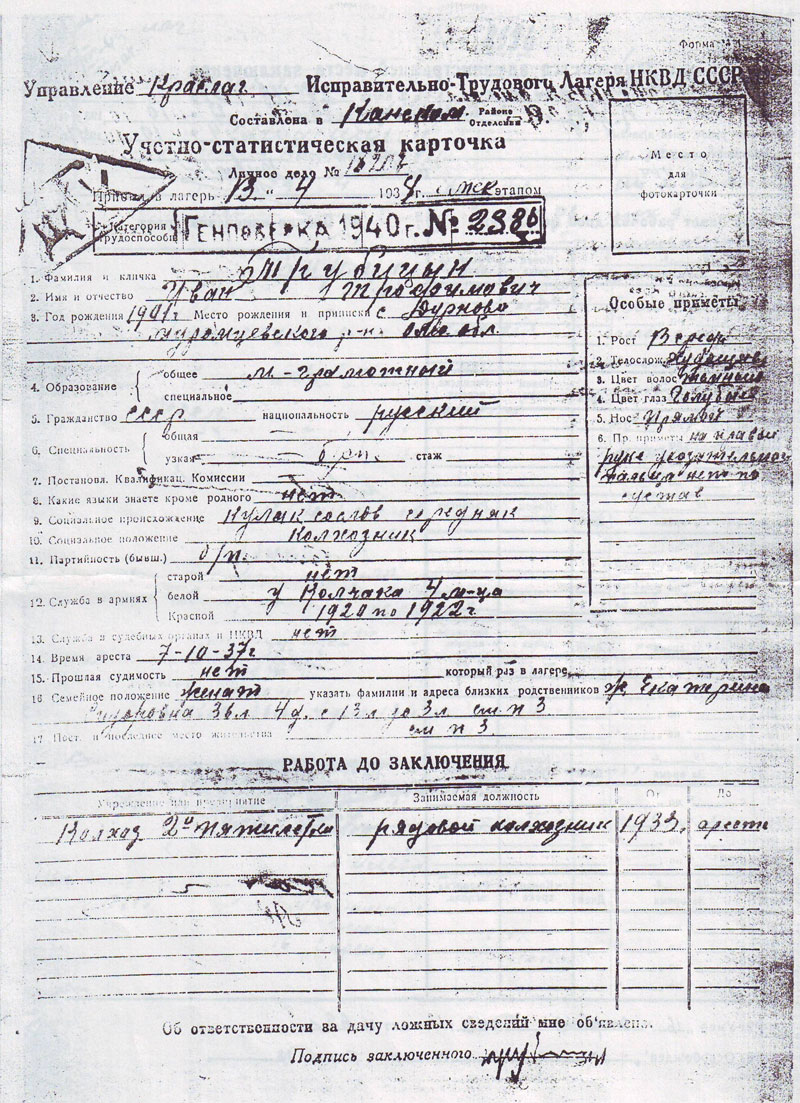 Форма №
Управление Краслаг Исправительно-Трудового Лагеря НКВД СССР
Составлена в Канском Районе Отделении
Учетно-статистическая карточка
Личное дело №
Прибыл в лагерь 193 г. этапом
Место
для
фотокарточки
Категория трудоспособн
ГЕНПОВЕРКА 1940 г. № 2386
1. Фамилия и кличка Трубицын
2. Имя и отчество Иван Трофимович
3. Год рождения 1901 Место рождения и приписки с
Муромцевского р-н. Омс обл.
4. Образование общее м-грамотный
специальное
5. Гражданство СССР национальность русский
6. Специальность общая
узкая стаж
7. Постановл. Квалификац. Комиссии
8. Какие языки знаете кроме родного нет
9. Социальное происхождение Кулак сослов середняк
10. Социальное положение колхозник
11. Партийность (бывш.) б/п.
12. Служба в армиях старой нет
белой у Колчака 4 м-ца
Красной 1920 по 1922 г
13. Служба в судебных органах и НКВД нет
14. Время ареста 7-10-37 г
15. Прошлая судимость нет который раз в лагере
16 Семейное положение женат указать фамилии и адреса близких родственников ж Екатерина
4 д. с 13 л до 3 л см п 3
17 Пост. и последнее место жительства см п 3
Особые приметы
1. Рост
2. Телослож.
3. Цвет волос темный
4. Цвет глаз Голубые
5. Нос Прямой
6. Пр. приметы на правой
руке указательного
пальца нет по
сустав
РАБОТА ДО ЗАКЛЮЧЕНИЯ
Учреждение или предприятие Занимаемая должность От До
Колхоз 2ая пятилетка рядовой колхозник 1933. арест
Об ответственности за дачу ложных сведений мне об'явлено.
Подпись заключенного